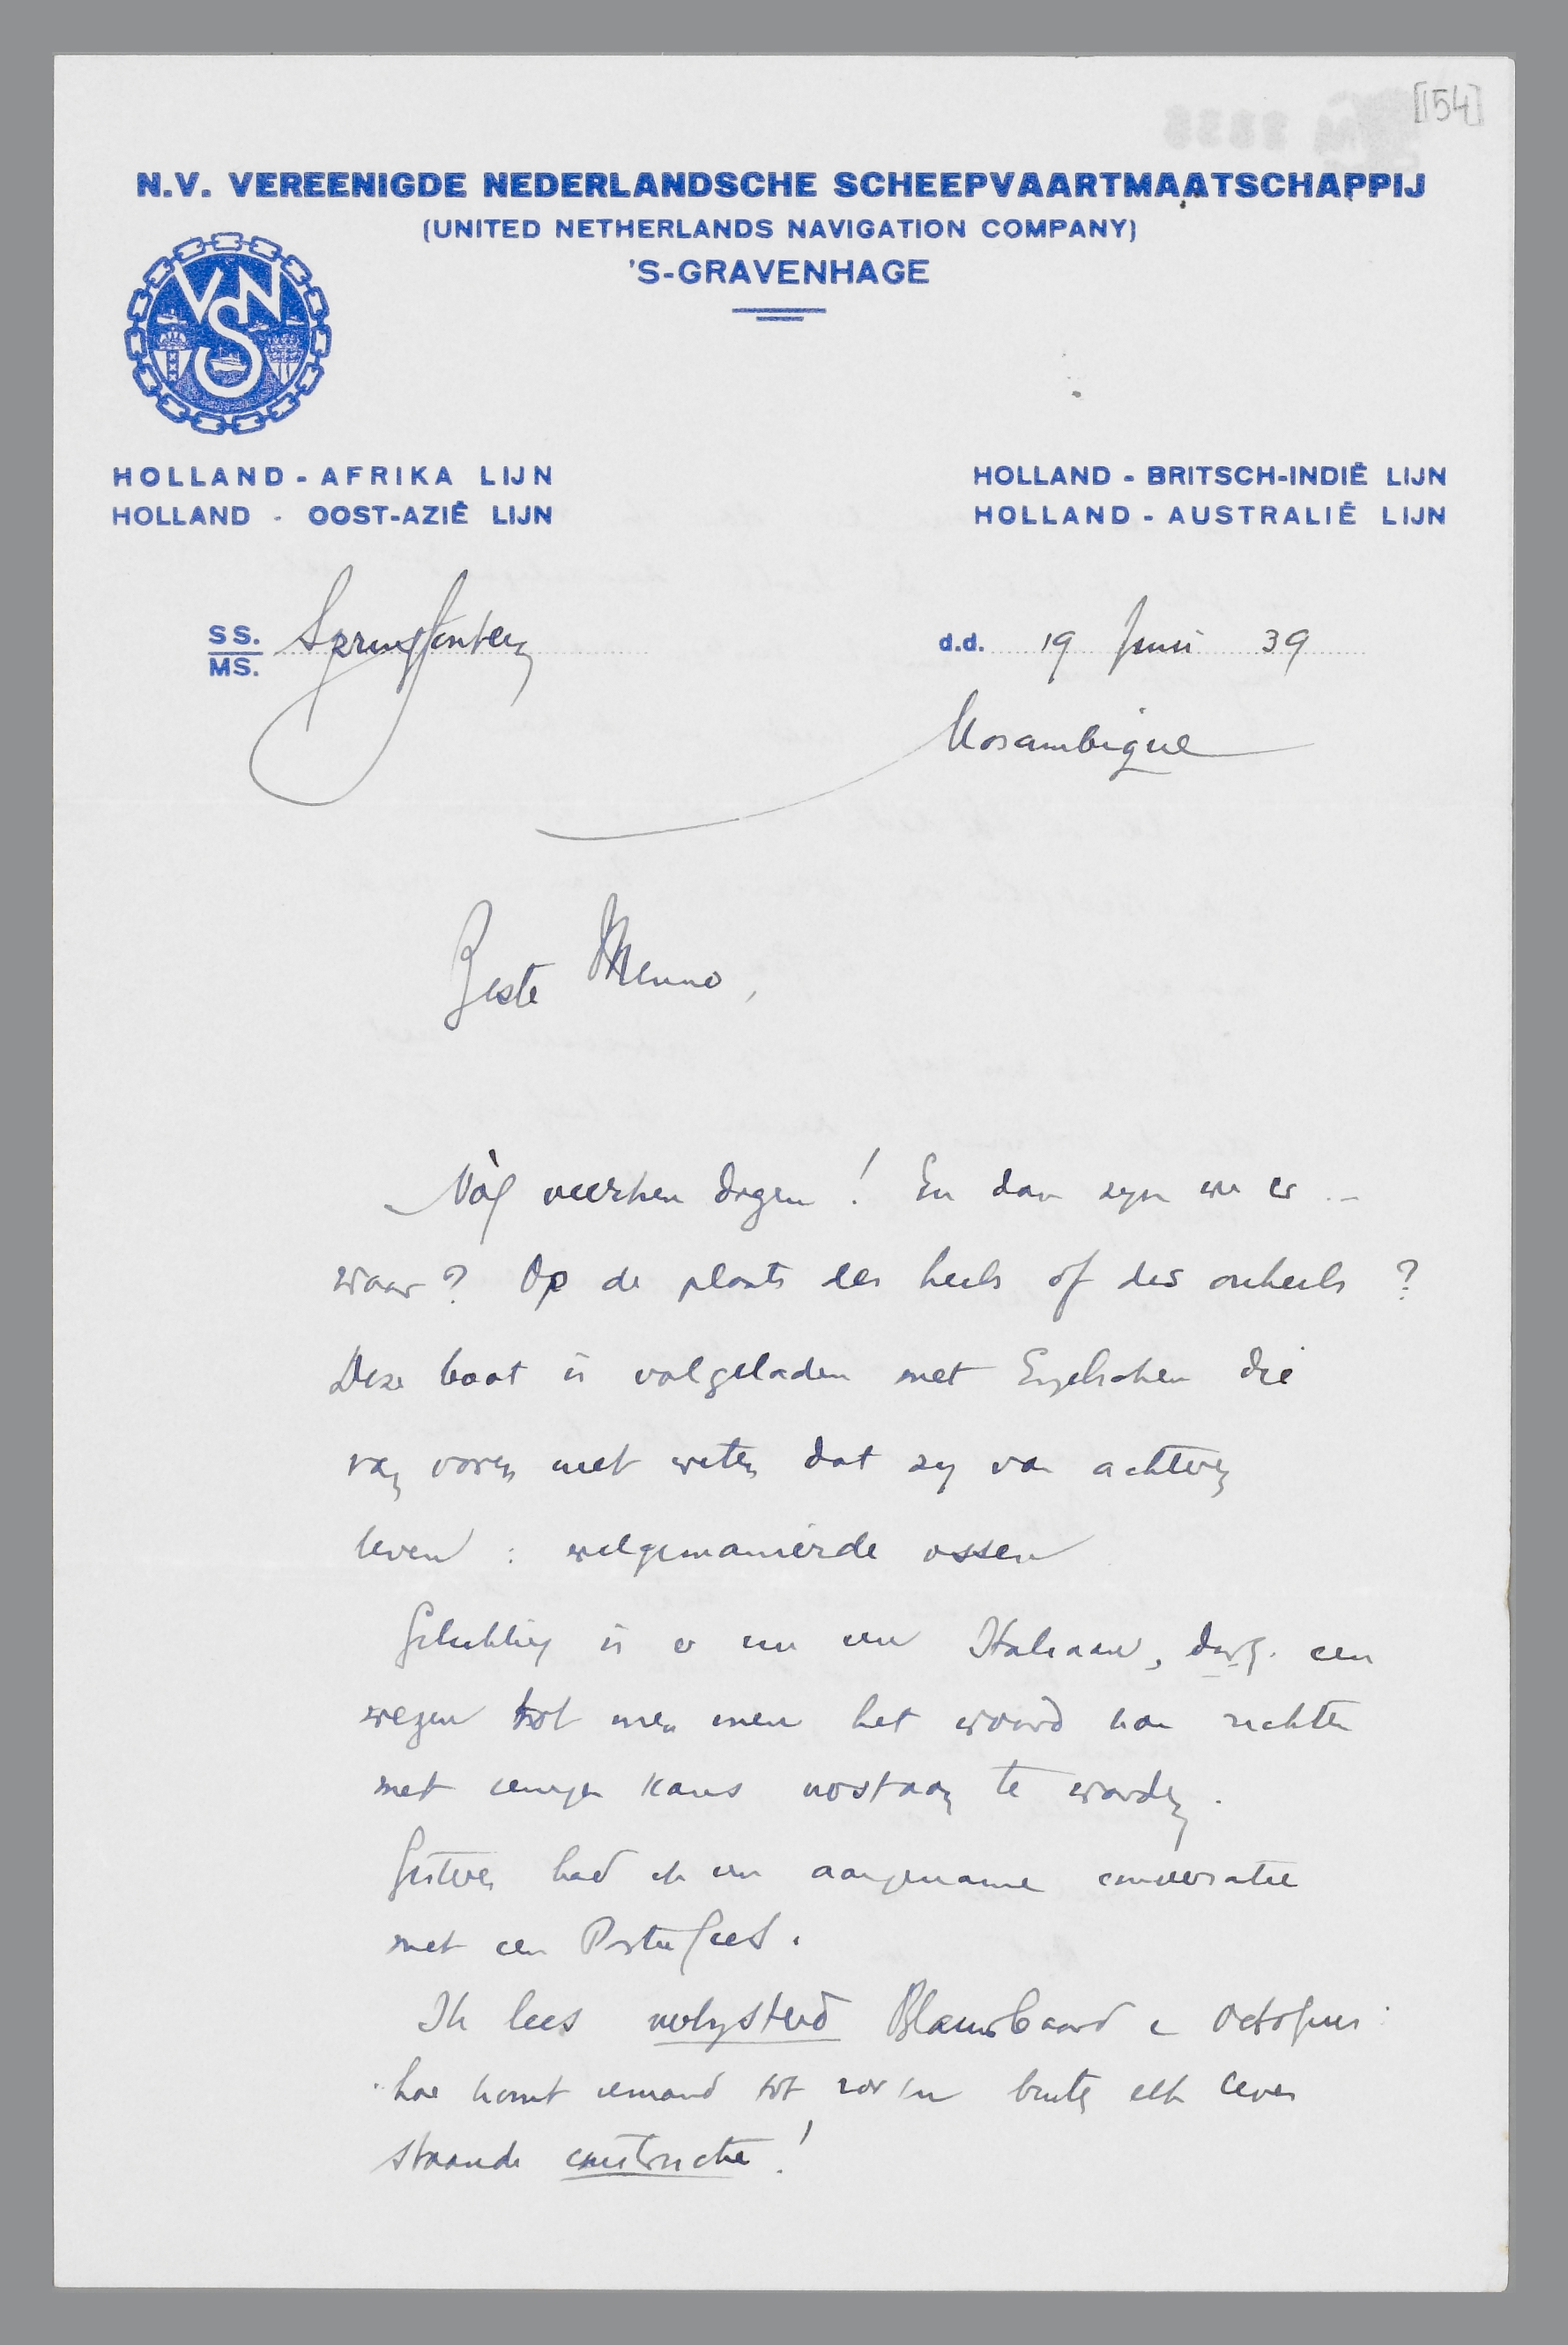 [154]
N.V. VEREENIGDE NEDERLANDSCHE SCHEEPVAARTMAATSCHAPPIJ
(UNITED NETHERLANDS NAVIGATION COMPANY)
'S-GRAVENHAGE
VNS
HOLLAND - AFRIKA LIJN
HOLLAND - OOST-AZIË LIJN
HOLLAND - BRITSCH-INDIË LIJN
HOLLAND - AUSTRALIË LIJN
SS. Springfontein
MS.
d.d. 19 Juni 39
Mozambique
Beste Menno,
Nòg veertien dagen! En dan zijn we er ...
waar? Op de plaats des heils of des onheils?
Deze boot is volgeladen met Engelschen die
van voren niet weten dat zij van achteren
leven: welgemanierde ossen
Gelukkig is er nu een Italiaan, d.w.z. een
wezen tot wien men het woord kan richten
met eenige kans verstaan te worden.
Gisteren had ik een aangename conversatie
met een Portugees.
Ik lees verbijsterd Blauwbaard en Octopus:
hoe komt iemand tot zoo'n buiten elk leven
staande constructie!